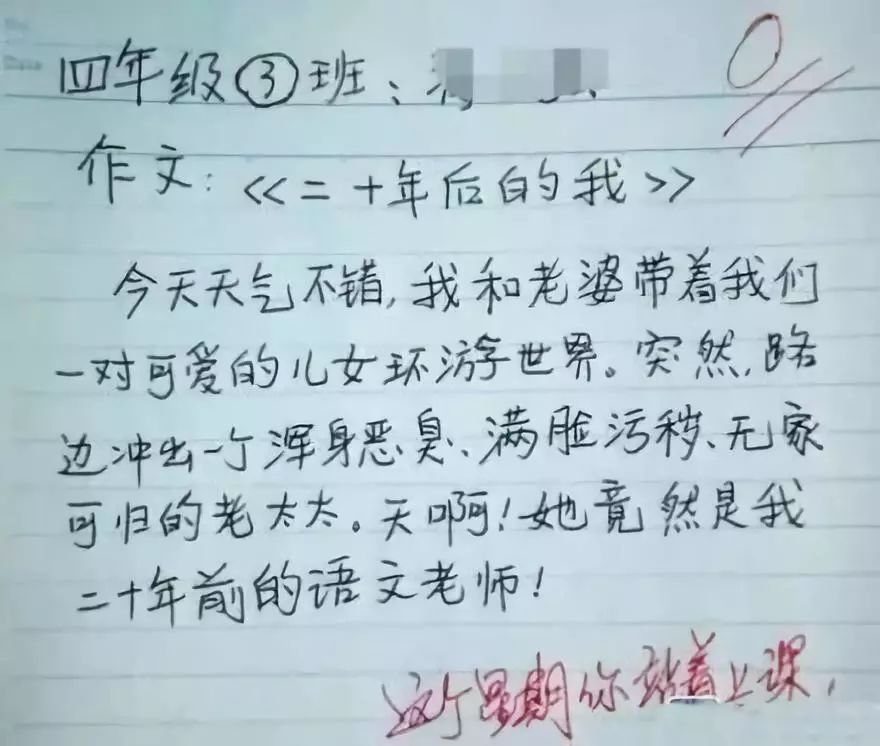 四年级③班:
0
作文:<<二十年后的我>>
今天天气不错,我和老婆带着我们
一对可爱的儿女环游世界。突然,路
边冲出一个浑身恶臭、满脸污秽、无家
可归的老太太。天啊!她竟然是我
二十年前的语文老师!
这个星期你站着上课,